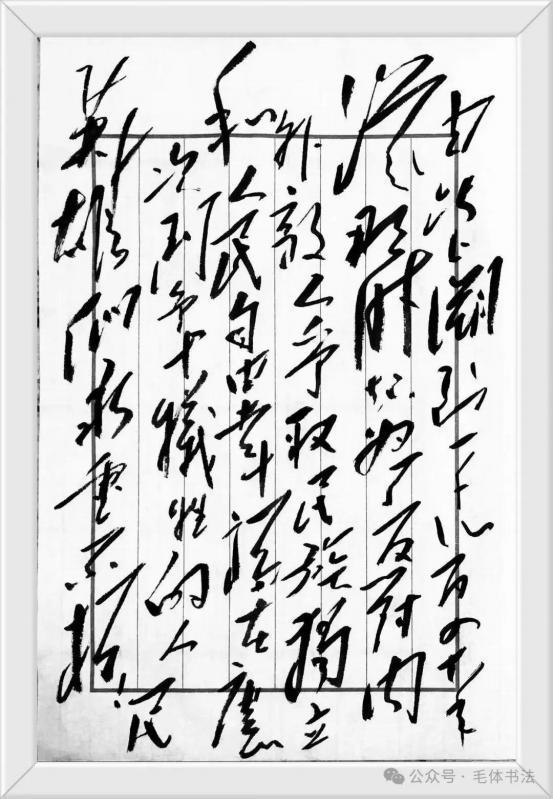 由此上溯到一千八百四十年
從那时起为了反对内
外敌人争取民族獨立
和人民自由幸福在歷
次鬥争中犧牲的人民
英雄们永垂不朽！
公众号·毛体书法